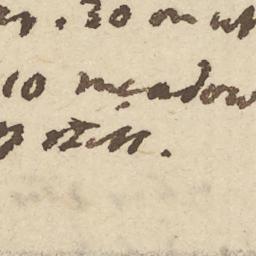 . 30 on
10 meadow
still.